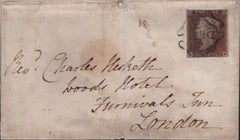 Revd Charles Hesketh
Woods Hotel
Furnivals Inn
London